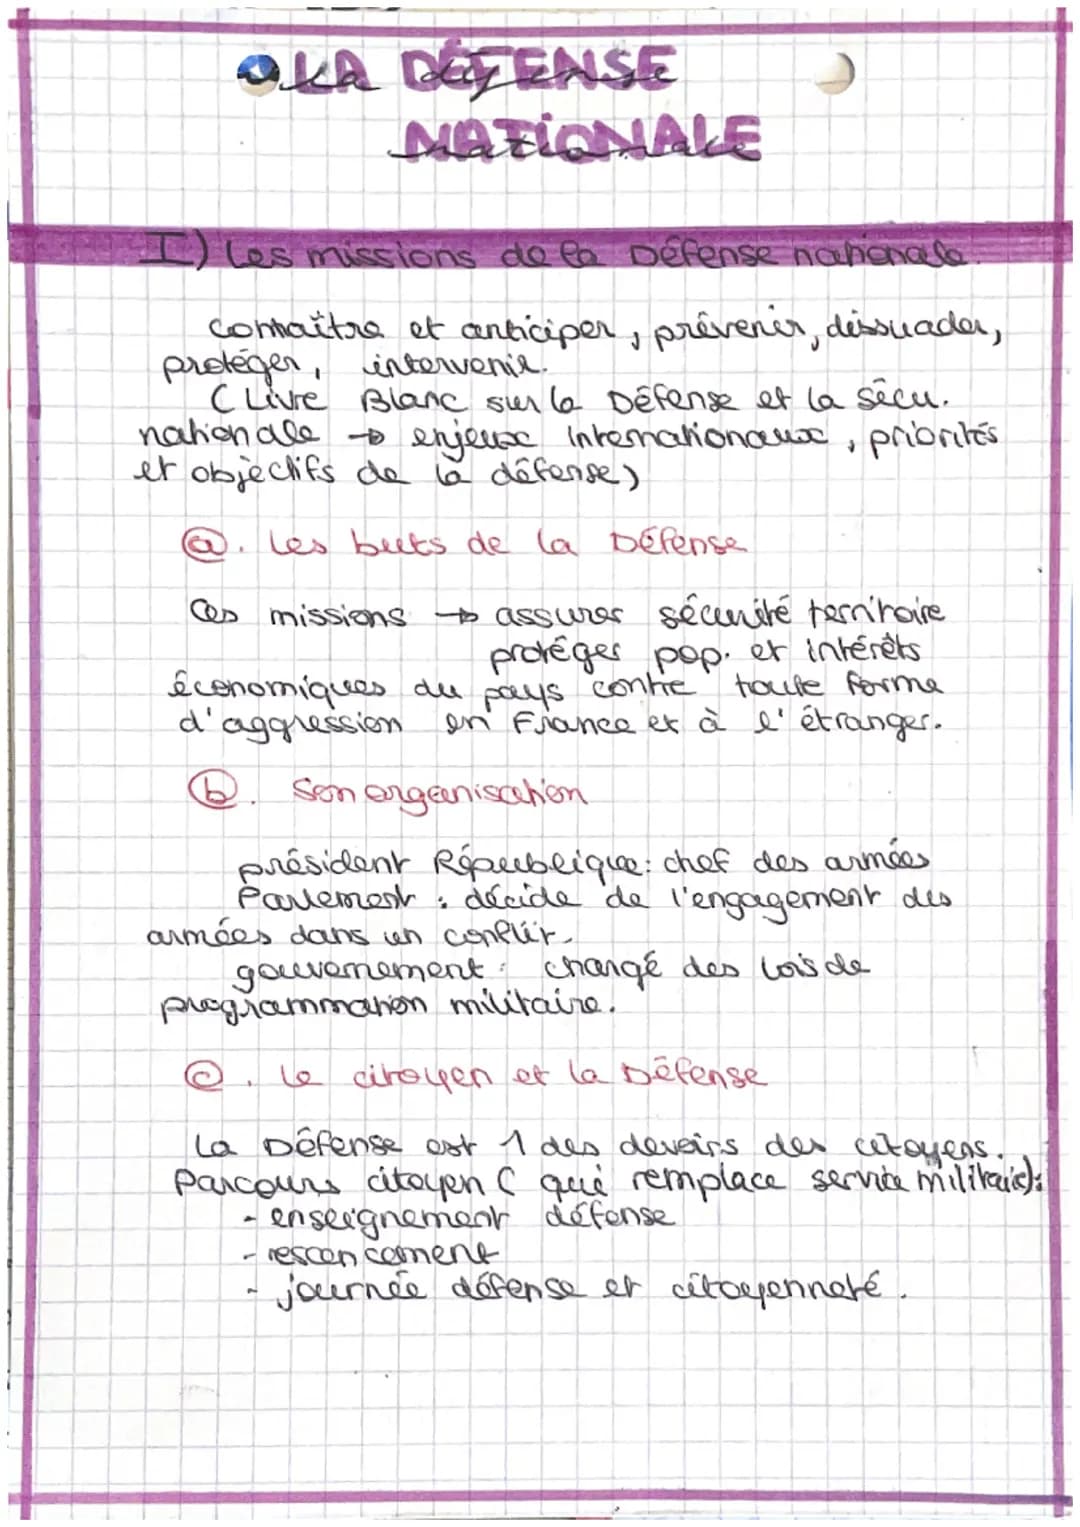 LA DÉFENSE
NATIONALE
I) Les missions de la Défense nationale.
connaître et anticiper, prévenir, dissuader,
protéger, intervenir.
(Livre Blanc sur la Défense et la sécu.
nationale → enjeux internationaux, priorités
et objectifs de la défense)
a. Les buts de la Défense
Ces missions → assurer sécurité territoire
protéger pop. et intérêts
économiques du pays contre toute forme
d'aggression en France et à l'étranger.
b. Son organisation
président République : chef des armées
Parlement : décide de l'engagement des
armées dans un conflit.
gouvernement : changé des lois de
programmation militaire.
c. Le citoyen et la Défense
La Défense est 1 des devoirs des citoyens.
Parcours citoyen (qui remplace service militaire) :
- enseignement défense
- rescencement
- journée défense et citoyenneté.